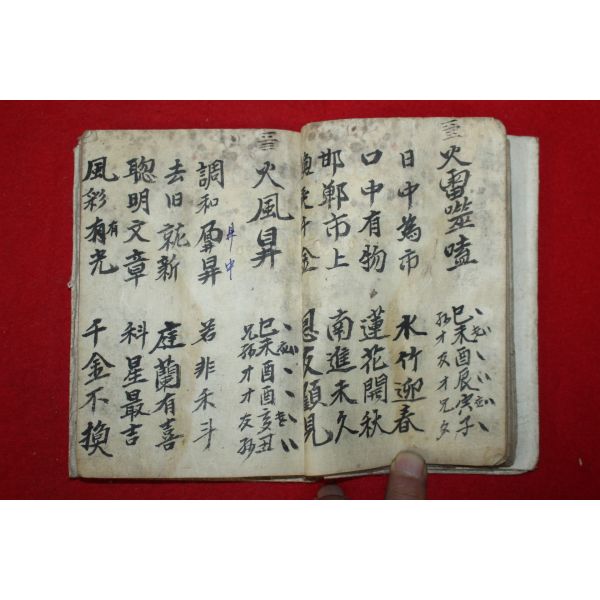 火雷噬嗑
巳未酉辰寅子
孫才友才兄父
日中為市 水竹迎春
口中有物 蓮花開秋
邯鄲市上 南進未久
千金 恩反顧見
火風昇
巳未酉酉亥丑
兄孫才才友孫
調和昇 若非禾斗
去旧就新 庭蘭有喜
聰明文章 科星最吉
風彩有光 千金不換
有